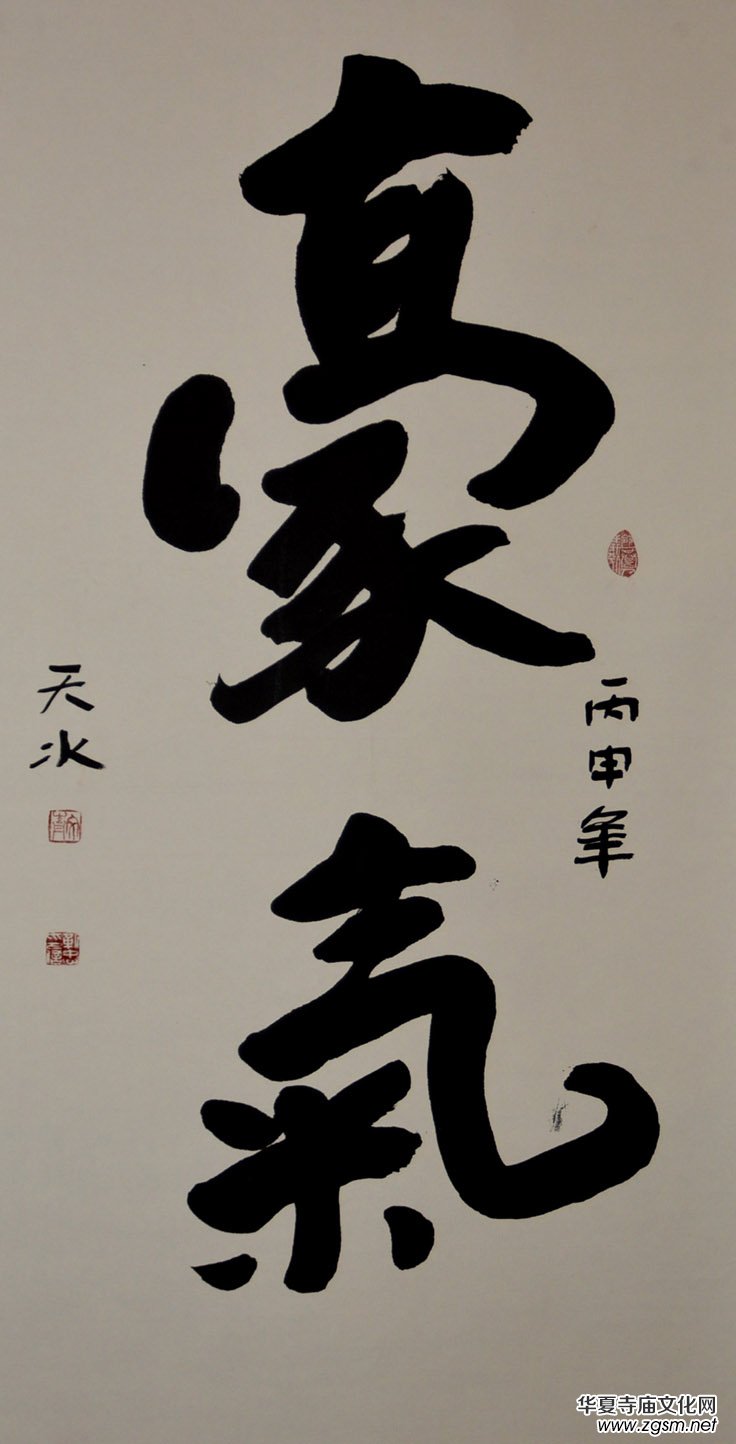 豪氣
丙申年
天冰
华夏寺庙文化网
www.zgsm.net